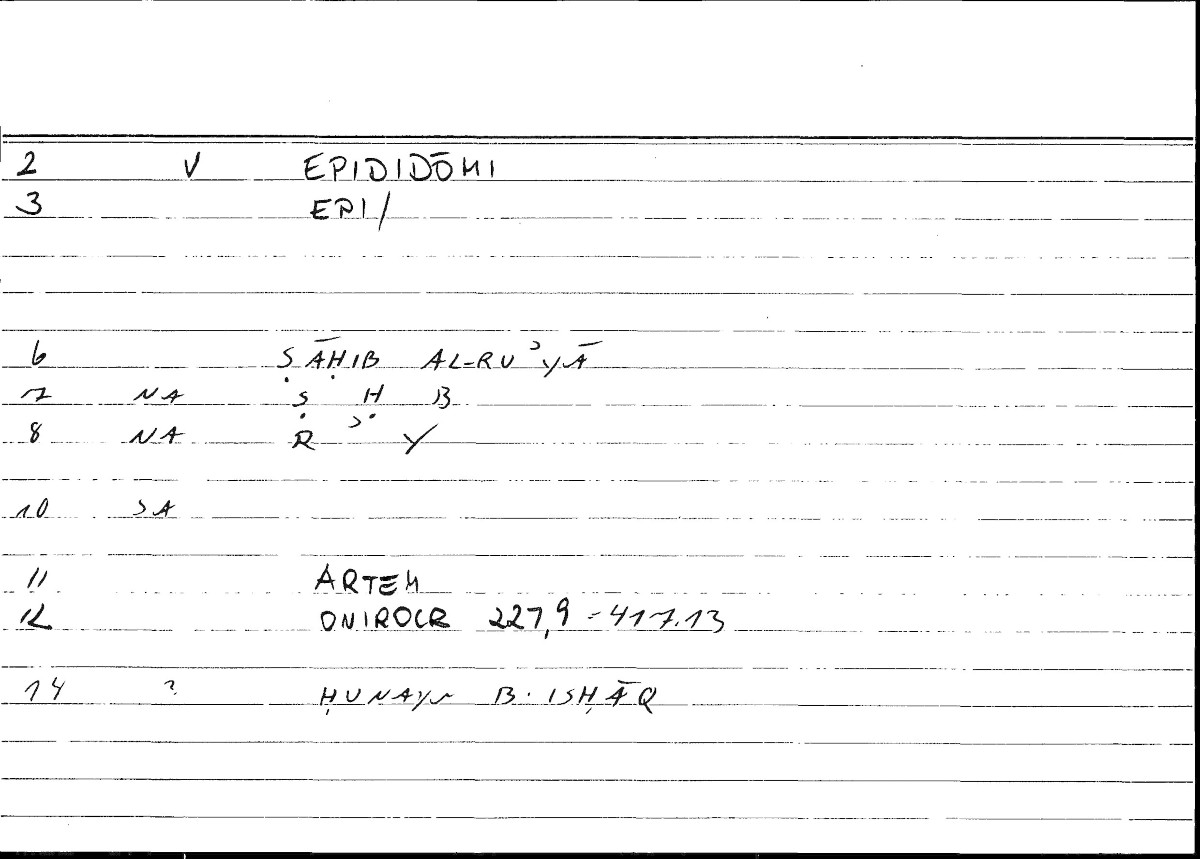 2 V EPIDIDŌMI
3 EPI/
6 ṢĀḤIB AL-RUʾYĀ
7 NA Ṣ Ḥ B
8 NA R ʾ Y
10 SA
11 ARTEM
12 ONIROCR 227,9-417.13
14 ? ḤUNAYN B. ISḤĀQ